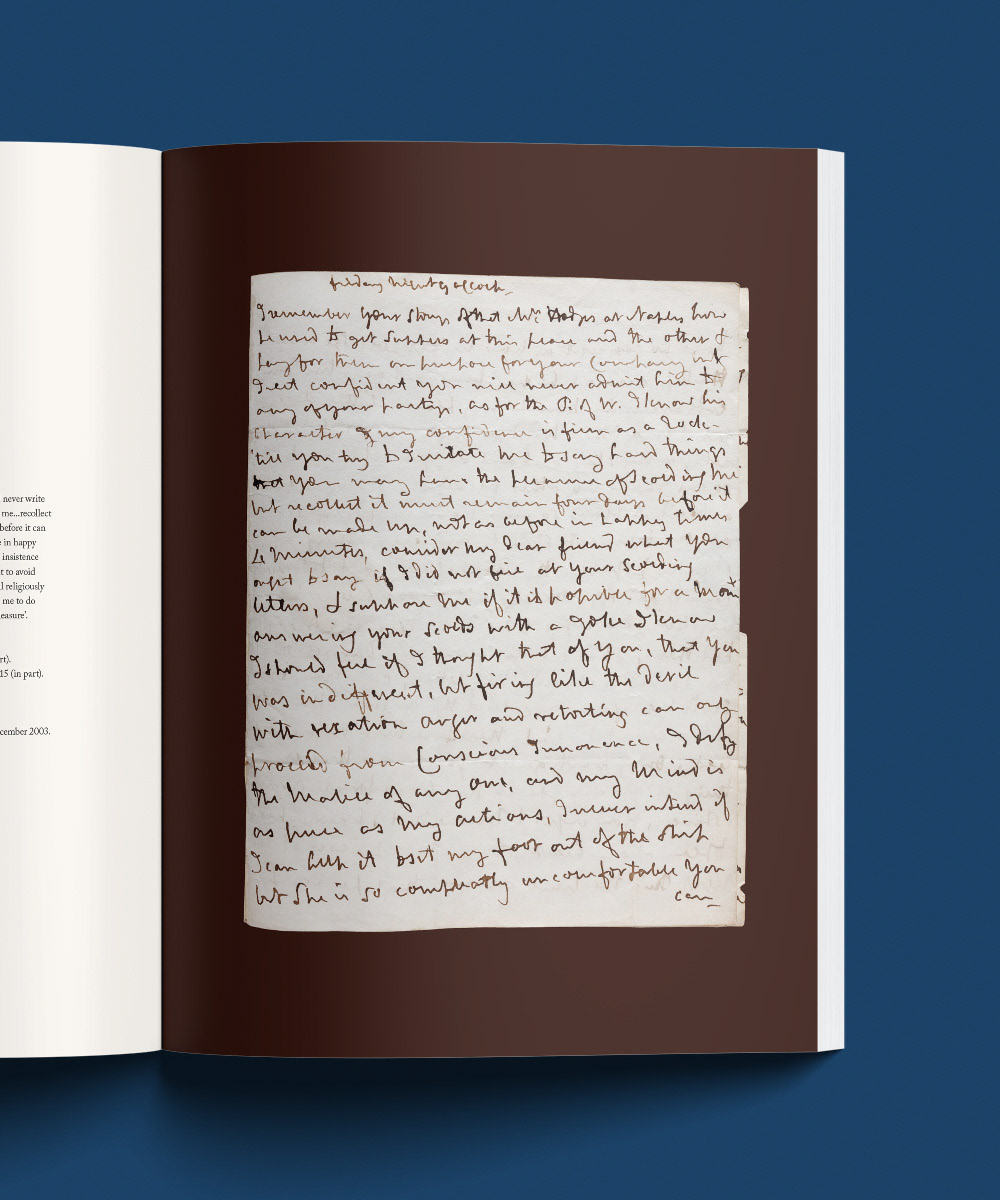 never write
me...recollect
before it can
e in happy
insistence
t to avoid
l religiously
me to do
easure'.
rt).
15 (in part).
cember 2003.
friday night 9 oClock
I remember your story of that Mr. Hodges at Naples how
he used to get suppers at this place and the other &
pay for them on purpose for your Company but
I feel confident you will never admit him to
any of your partys, as for the P. of W. I know his
character & my confidence is firm as a Rock
'till you try to Imitate me to say hard things
you may have the pleasure of scolding me
but recollect it must remain four days before it
can be made up, not as before in happy times
4 Minutes, consider my Dear friend what you
ought to say if I did not fire at your scolding
letters, & suppose me if it is possible for a Mom
answering your scolds with a joke I know
I should fire if I thought that of you, that you
was indifferent, but firing like the devil
with vexation anger and retorting can only
proceed from Conscious Innocence, I defy
the Malice of any one, and my Mind is
as pure as my actions, I never intend if
I can help it to set my foot out of the ship
but she is so compleatly uncomfortable you
can